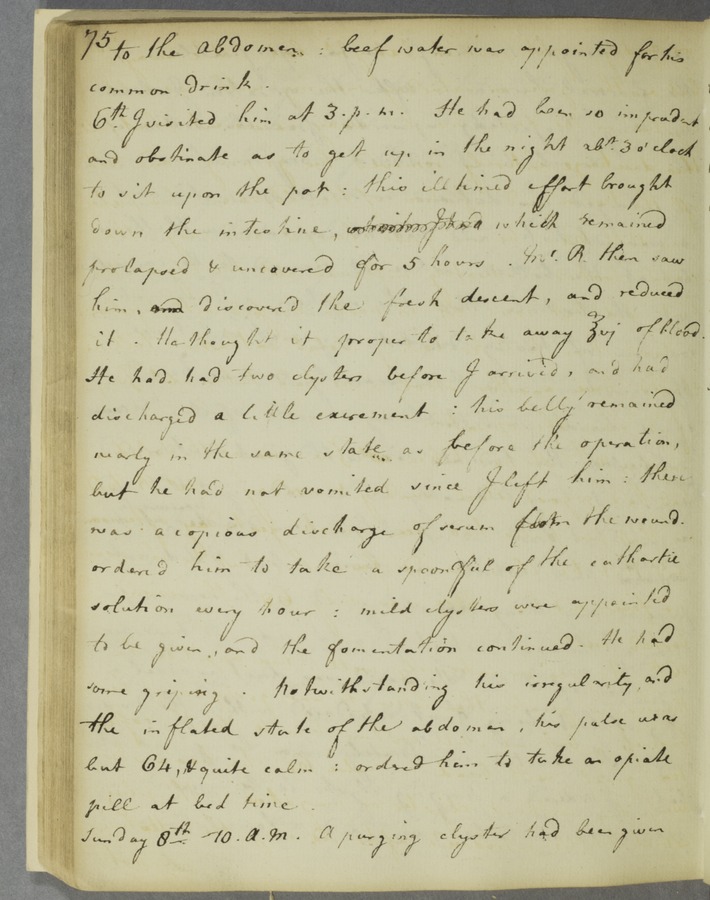 75
to the abdomen : beef water was appointed for his
common drink.
6th. I visited him at 3. p. m. He had been so imprudent
and obstinate as to get up in the night abt. 3 o'clock
to sit upon the pot : this ill timed effort brought
down the intestine, which remained
prolapsed & uncovered for 5 hours. Mr. R. then saw
him, discovered the fresh descent, and reduced
it. He thought it proper to take away ℥vj of blood.
He had had two clysters before I arrived, and had
discharged a little excrement : his belly remained
nearly in the same state as before the operation,
but he had not vomited since I left him : there
was a copious discharge of serum from the wound.
ordered him to take a spoonful of the cathartic
solution every hour : mild clysters were appointed
to be given, and the fomentation continued. He had
some griping. Notwithstanding his irregularity, and
the inflated state of the abdomen, his pulse was
but 64, & quite calm : ordered him to take an opiate
pill at bed time.
Sunday 8th 10. A. M. A purging clyster had been given